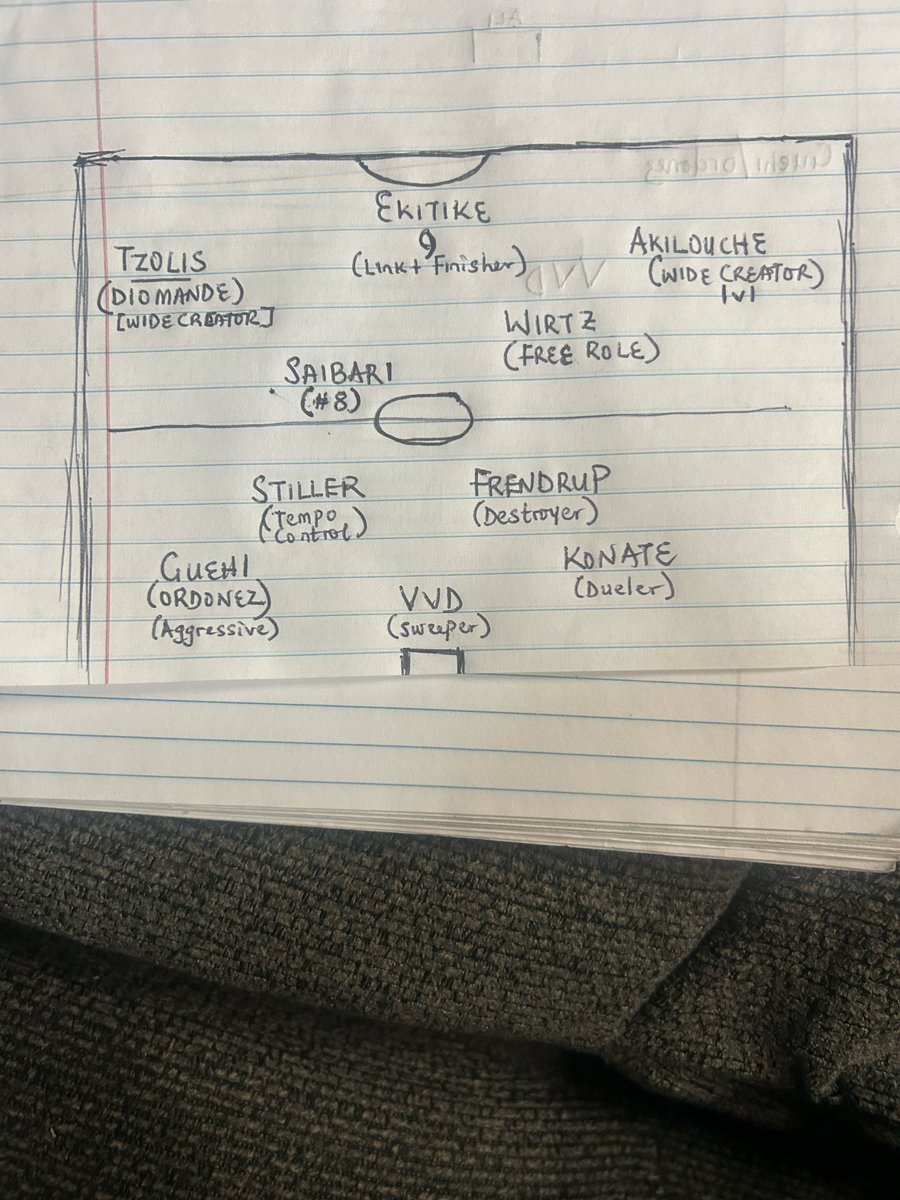 EKITIKE
9
(Link + Finisher)
TZOLIS
(DIOMANDE)
[WIDE CREATOR]
AKILOUCHE
(WIDE CREATOR)
1v1
WIRTZ
(FREE ROLE)
SAIBARI
(#8)
STILLER
(Tempo
Control)
FRENDRUP
(Destroyer)
GUEHI
(ORDONEZ)
(Aggressive)
KONATE
(Dueler)
VVD
(Sweeper)
ALI
Guehi/ordonez
VVD